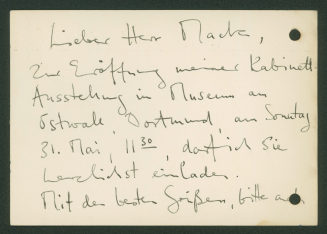 Lieber Herr Macke,
Zur Eröffnung meiner Kabinett-
Ausstellung im Museum am
Ostwall, Dortmund, am Sonntag
31. Mai, 11 30, darf ich Sie
herzlichst einladen.
Mit den besten Grüßen, bitte auch